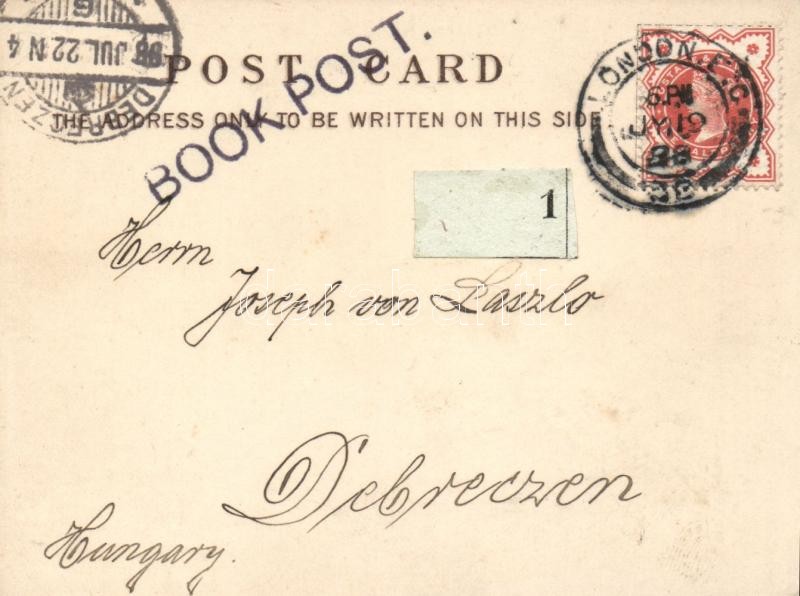 POST CARD
THE ADDRESS ONLY TO BE WRITTEN ON THIS SIDE
BOOK POST.
DEBRECZEN
98 JUL 22 N 4
LONDON E.C.
6.PM
JY 19
98
1
Herrn
Joseph von Laszlo
Debreczen
Hungary.